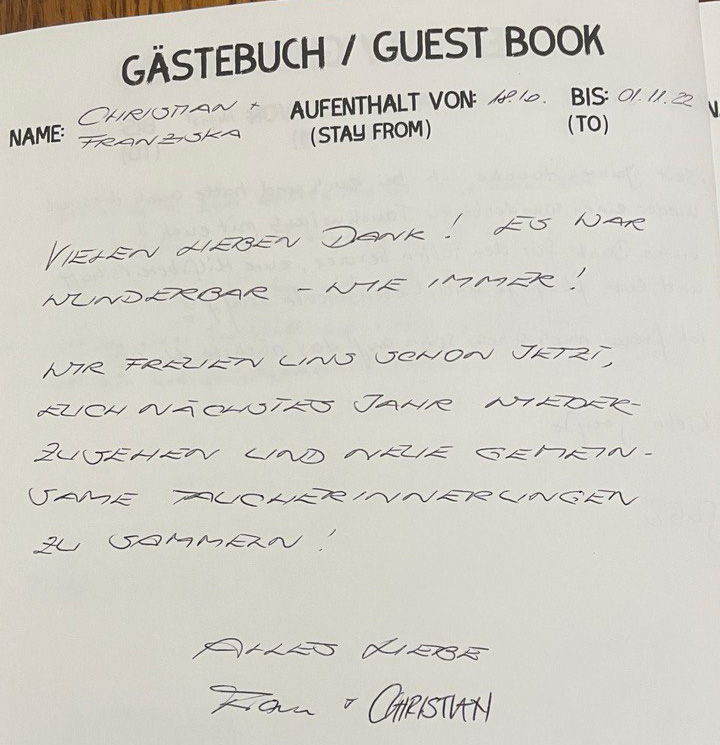 GÄSTEBUCH / GUEST BOOK
NAME: CHRISTIAN + FRANZISKA
AUFENTHALT VON: 18.10. BIS: 01.11.22
(STAY FROM) (TO)
VIELEN LIEBEN DANK! ES WAR
WUNDERBAR - WIE IMMER!
WIR FREUEN UNS SCHON JETZT,
EUCH NÄCHSTES JAHR WIEDER-
ZUSEHEN UND NEUE GEMEIN-
SAME TAUCHERINNERUNGEN
ZU SAMMELN!
ALLES LIEBE
+ CHRISTIAN